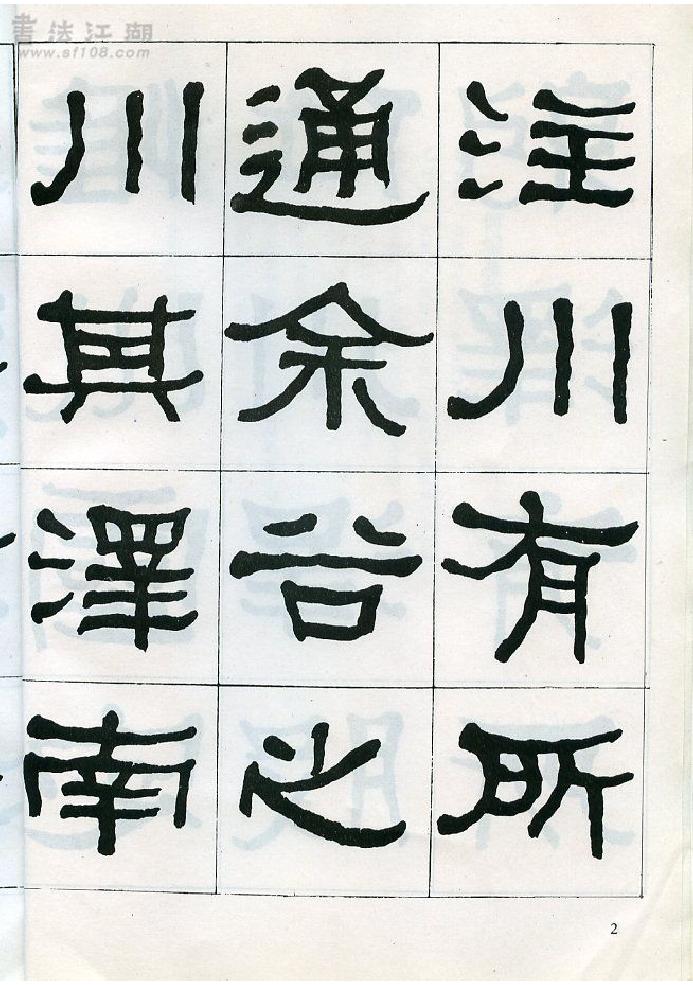 書法江湖
www.sf108.com
注川有所
通余谷之
川其澤南
2